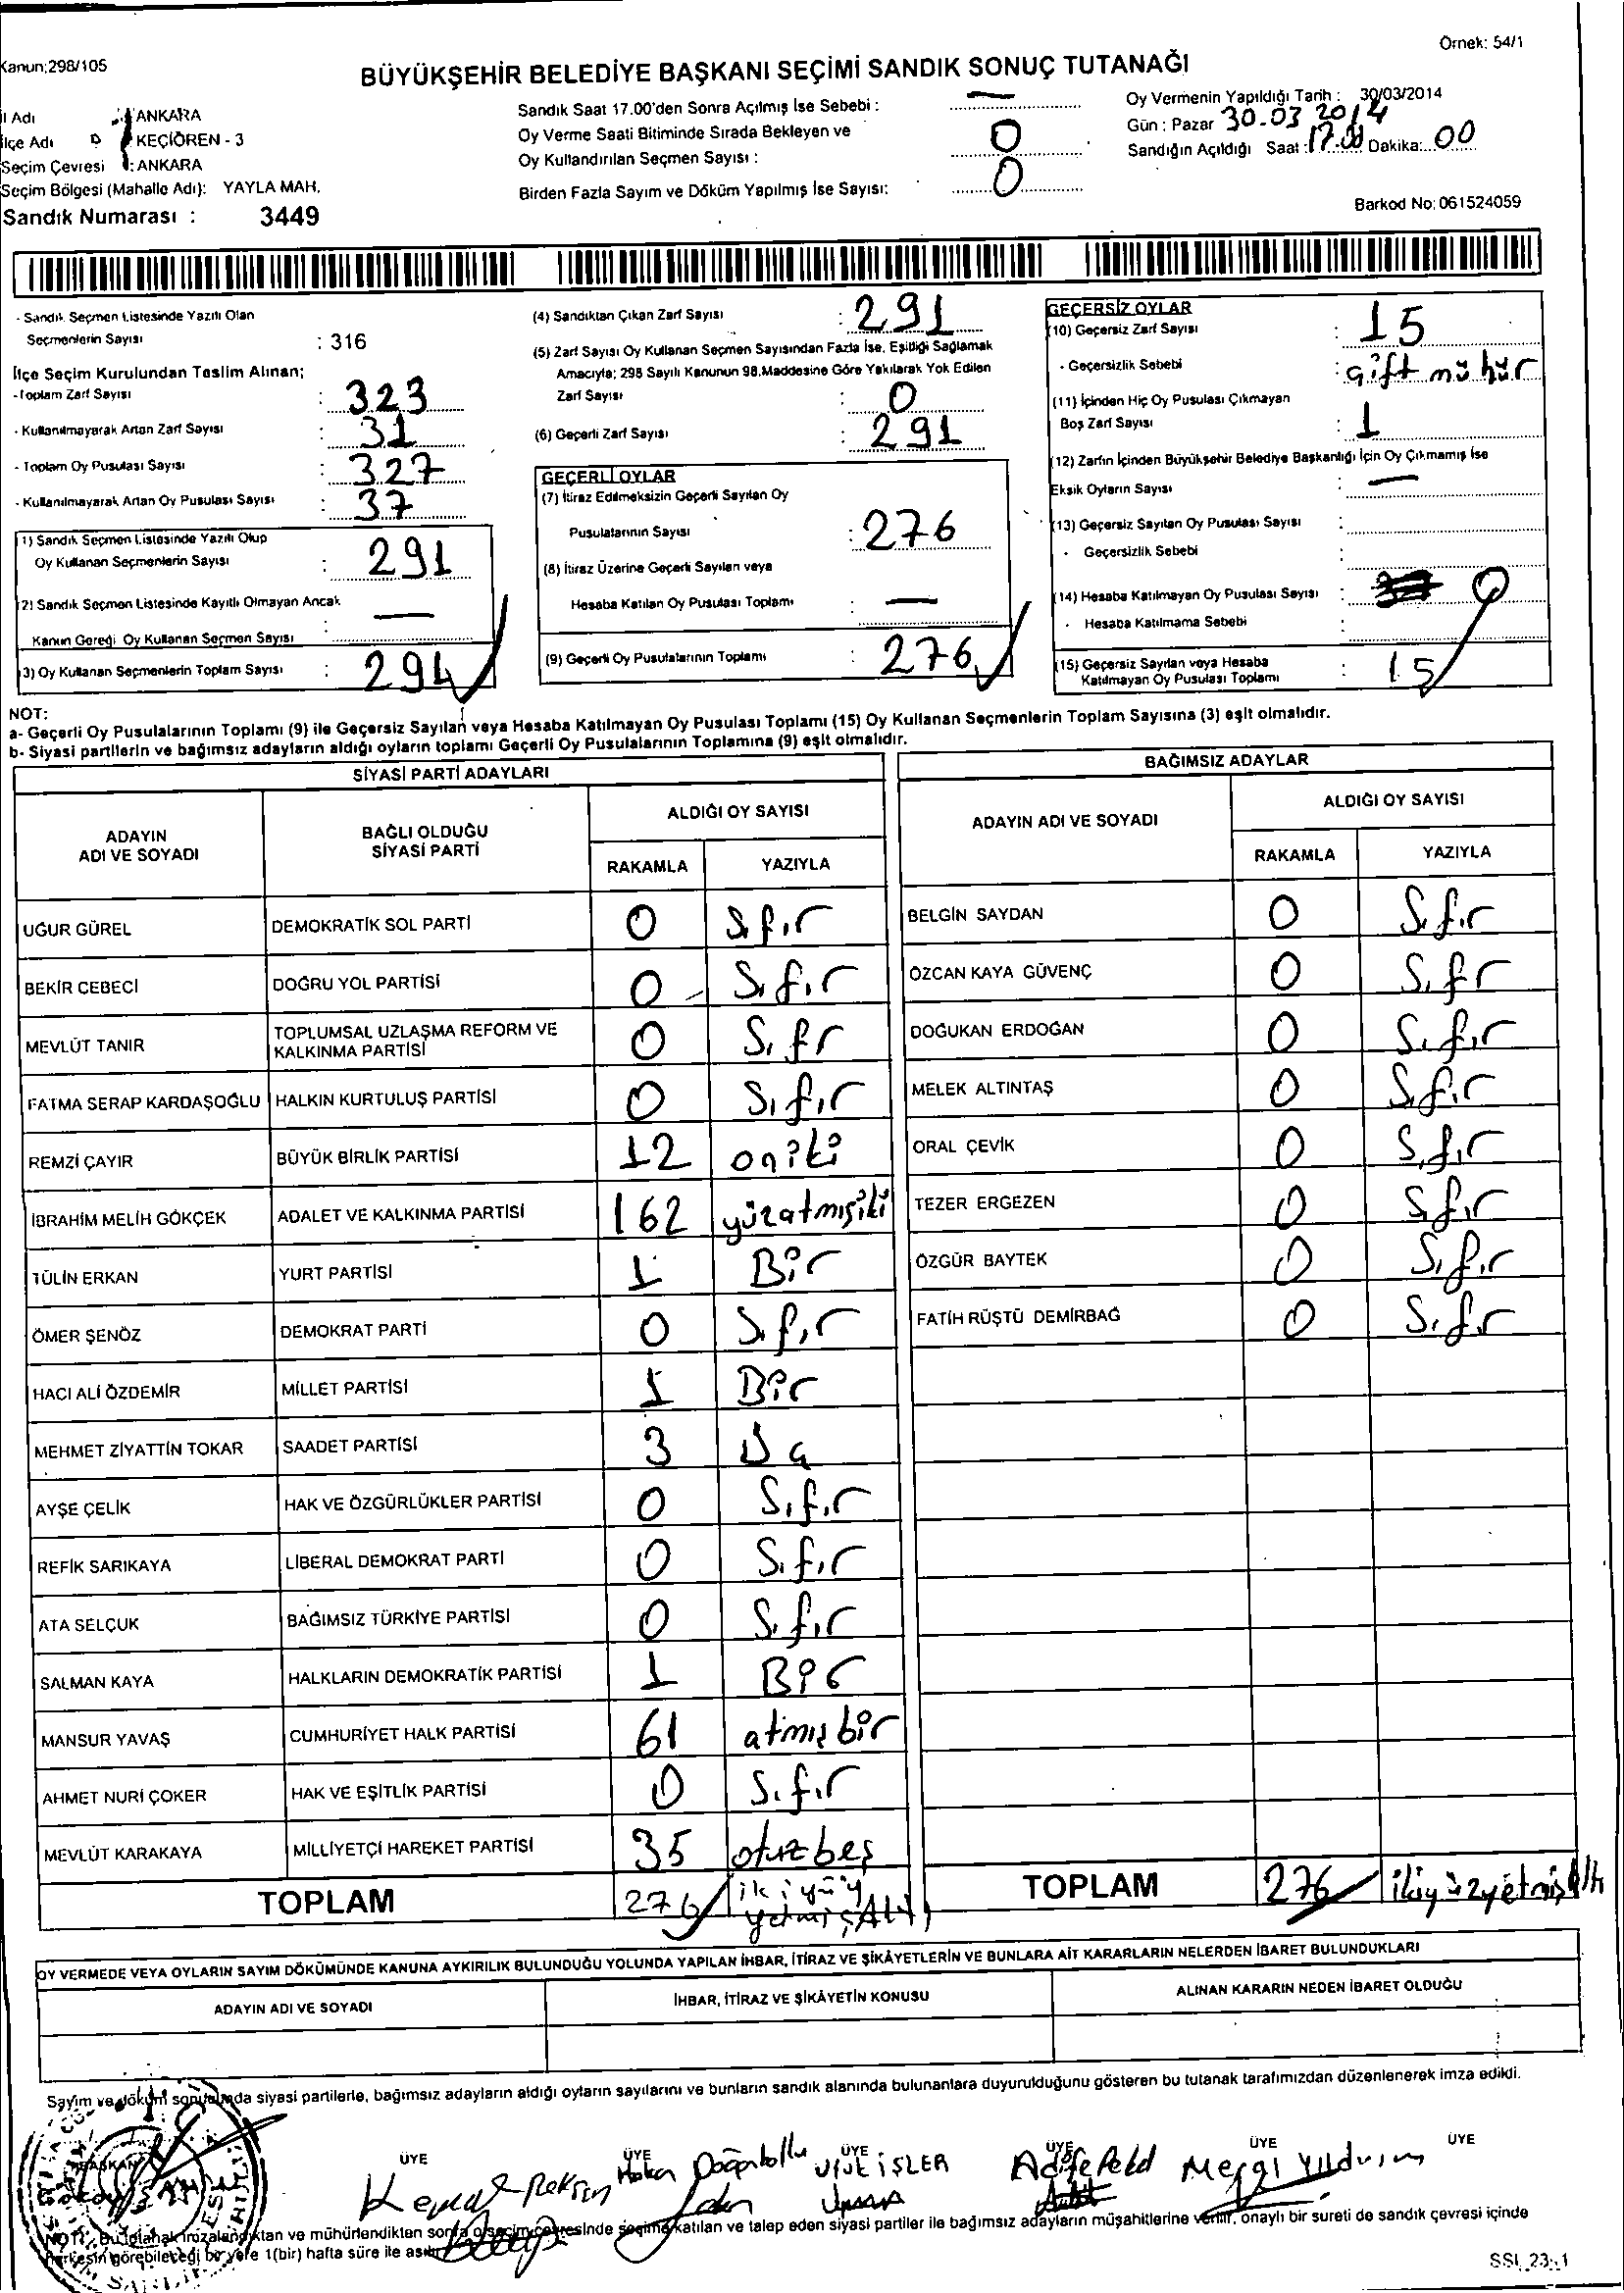 Örnek: 54/1
Kanun;298/105
BÜYÜKŞEHİR BELEDİYE BAŞKANI SEÇİMİ SANDIK SONUÇ TUTANAĞI
İl Adı : ANKARA
İlçe Adı : KEÇİÖREN - 3
Seçim Çevresi : ANKARA
Seçim Bölgesi (Mahalle Adı): YAYLA MAH.
Sandık Numarası : 3449
Sandık Saat 17.00'den Sonra Açılmış İse Sebebi : —
Oy Verme Saati Bitiminde Sırada Bekleyen ve
Oy Kullandırılan Seçmen Sayısı : 0
Birden Fazla Sayım ve Döküm Yapılmış İse Sayısı: 0
Oy Vermenin Yapıldığı Tarih : 30/03/2014
Gün : Pazar 30.03.2014
Sandığın Açıldığı Saat : 17.00 Dakika: 00
Barkod No: 061524059
- Sandık Seçmen Listesinde Yazılı Olan
Seçmenlerin Sayısı : 316
İlçe Seçim Kurulundan Teslim Alınan;
- Toplam Zarf Sayısı : 323
- Kullanılmayarak Artan Zarf Sayısı : 31
- Toplam Oy Pusulası Sayısı : 327
- Kullanılmayarak Artan Oy Pusulası Sayısı : 37
1) Sandık Seçmen Listesinde Yazılı Olup
Oy Kullanan Seçmenlerin Sayısı : 291
2) Sandık Seçmen Listesinde Kayıtlı Olmayan Ancak
Kanun Gereği Oy Kullanan Seçmen Sayısı : —
3) Oy Kullanan Seçmenlerin Toplam Sayısı : 291
(4) Sandıktan Çıkan Zarf Sayısı : 291
(5) Zarf Sayısı Oy Kullanan Seçmen Sayısından Fazla İse, Eşitliği Sağlamak
Amacıyla; 298 Sayılı Kanunun 98.Maddesine Göre Yakılarak Yok Edilen
Zarf Sayısı : 0
(6) Geçerli Zarf Sayısı : 291
GEÇERLİ OYLAR
(7) İtiraz Edilmeksizin Geçerli Sayılan Oy
Pusulalarının Sayısı : 276
(8) İtiraz Üzerine Geçerli Sayılan veya
Hesaba Katılan Oy Pusulası Toplamı : —
(9) Geçerli Oy Pusulalarının Toplamı : 276
GEÇERSİZ OYLAR
(10) Geçersiz Zarf Sayısı : 15
- Geçersizlik Sebebi : çift mühür
(11) İçinden Hiç Oy Pusulası Çıkmayan
Boş Zarf Sayısı : 1
(12) Zarfın İçinden Büyükşehir Belediye Başkanlığı İçin Oy Çıkmamış İse
Eksik Oyların Sayısı : —
(13) Geçersiz Sayılan Oy Pusulası Sayısı :
- Geçersizlik Sebebi :
(14) Hesaba Katılmayan Oy Pusulası Sayısı : 0
- Hesaba Katılmama Sebebi :
(15) Geçersiz Sayılan veya Hesaba
Katılmayan Oy Pusulası Toplamı : 15
NOT:
a- Geçerli Oy Pusulalarının Toplamı (9) ile Geçersiz Sayılan veya Hesaba Katılmayan Oy Pusulası Toplamı (15) Oy Kullanan Seçmenlerin Toplam Sayısına (3) eşit olmalıdır.
b- Siyasi partilerin ve bağımsız adayların aldığı oyların toplamı Geçerli Oy Pusulalarının Toplamına (9) eşit olmalıdır.
SİYASİ PARTİ ADAYLARI
ADAYIN ADI VE SOYADI BAĞLI OLDUĞU SİYASİ PARTİ ALDIĞI OY SAYISI
RAKAMLA YAZIYLA
UĞUR GÜREL DEMOKRATİK SOL PARTİ 0 Sıfır
BEKİR CEBECİ DOĞRU YOL PARTİSİ 0 Sıfır
MEVLÜT TANIR TOPLUMSAL UZLAŞMA REFORM VE KALKINMA PARTİSİ 0 Sıfr
FATMA SERAP KARDAŞOĞLU HALKIN KURTULUŞ PARTİSİ 0 Sıfır
REMZİ ÇAYIR BÜYÜK BİRLİK PARTİSİ 12 oniki
İBRAHİM MELİH GÖKÇEK ADALET VE KALKINMA PARTİSİ 162 yüzatmışiki
TÜLİN ERKAN YURT PARTİSİ 1 Bir
ÖMER ŞENÖZ DEMOKRAT PARTİ 0 Sıfır
HACI ALİ ÖZDEMİR MİLLET PARTİSİ 1 Bir
MEHMET ZİYATTİN TOKAR SAADET PARTİSİ 3 Üç
AYŞE ÇELİK HAK VE ÖZGÜRLÜKLER PARTİSİ 0 Sıfır
REFİK SARIKAYA LİBERAL DEMOKRAT PARTİ 0 Sıfır
ATA SELÇUK BAĞIMSIZ TÜRKİYE PARTİSİ 0 Sıfır
SALMAN KAYA HALKLARIN DEMOKRATİK PARTİSİ 1 Bir
MANSUR YAVAŞ CUMHURİYET HALK PARTİSİ 61 atmış bir
AHMET NURİ ÇOKER HAK VE EŞİTLİK PARTİSİ 0 Sıfır
MEVLÜT KARAKAYA MİLLİYETÇİ HAREKET PARTİSİ 35 otuzbeş
TOPLAM 276
BAĞIMSIZ ADAYLAR
ADAYIN ADI VE SOYADI ALDIĞI OY SAYISI
RAKAMLA YAZIYLA
BELGİN SAYDAN 0 Sıfır
ÖZCAN KAYA GÜVENÇ 0 Sıfr
DOĞUKAN ERDOĞAN 0 Sıfır
MELEK ALTINTAŞ 0 Sıfır
ORAL ÇEVİK 0 Sıfır
TEZER ERGEZEN 0 Sıfır
ÖZGÜR BAYTEK 0 Sıfır
FATİH RÜŞTÜ DEMİRBAĞ 0 Sıfr
TOPLAM 276 ikiyüzyetmişaltı
OY VERMEDE VEYA OYLARIN SAYIM DÖKÜMÜNDE KANUNA AYKIRILIK BULUNDUĞU YOLUNDA YAPILAN İHBAR, İTİRAZ VE ŞİKÂYETLERİN VE BUNLARA AİT KARARLARIN NELERDEN İBARET BULUNDUKLARI
ADAYIN ADI VE SOYADI İHBAR, İTİRAZ VE ŞİKÂYETİN KONUSU ALINAN KARARIN NEDEN İBARET OLDUĞU
Sayım ve döküm sonucunda siyasi partilerle, bağımsız adayların aldığı oyların sayılarını ve bunların sandık alanında bulunanlara duyurulduğunu gösteren bu tutanak tarafımızdan düzenlenerek imza edildi.
BAŞKAN ÜYE ÜYE ÜYE ÜYE ÜYE ÜYE
İŞLER Yıldırım
NOT: Bu tutanak imzalandıktan ve mühürlendikten sonra o seçim çevresinde seçime katılan ve talep eden siyasi partiler ile bağımsız adayların müşahitlerine verilir, onaylı bir sureti de sandık çevresi içinde
herkesin görebileceği bir yere 1(bir) hafta süre ile asılır.